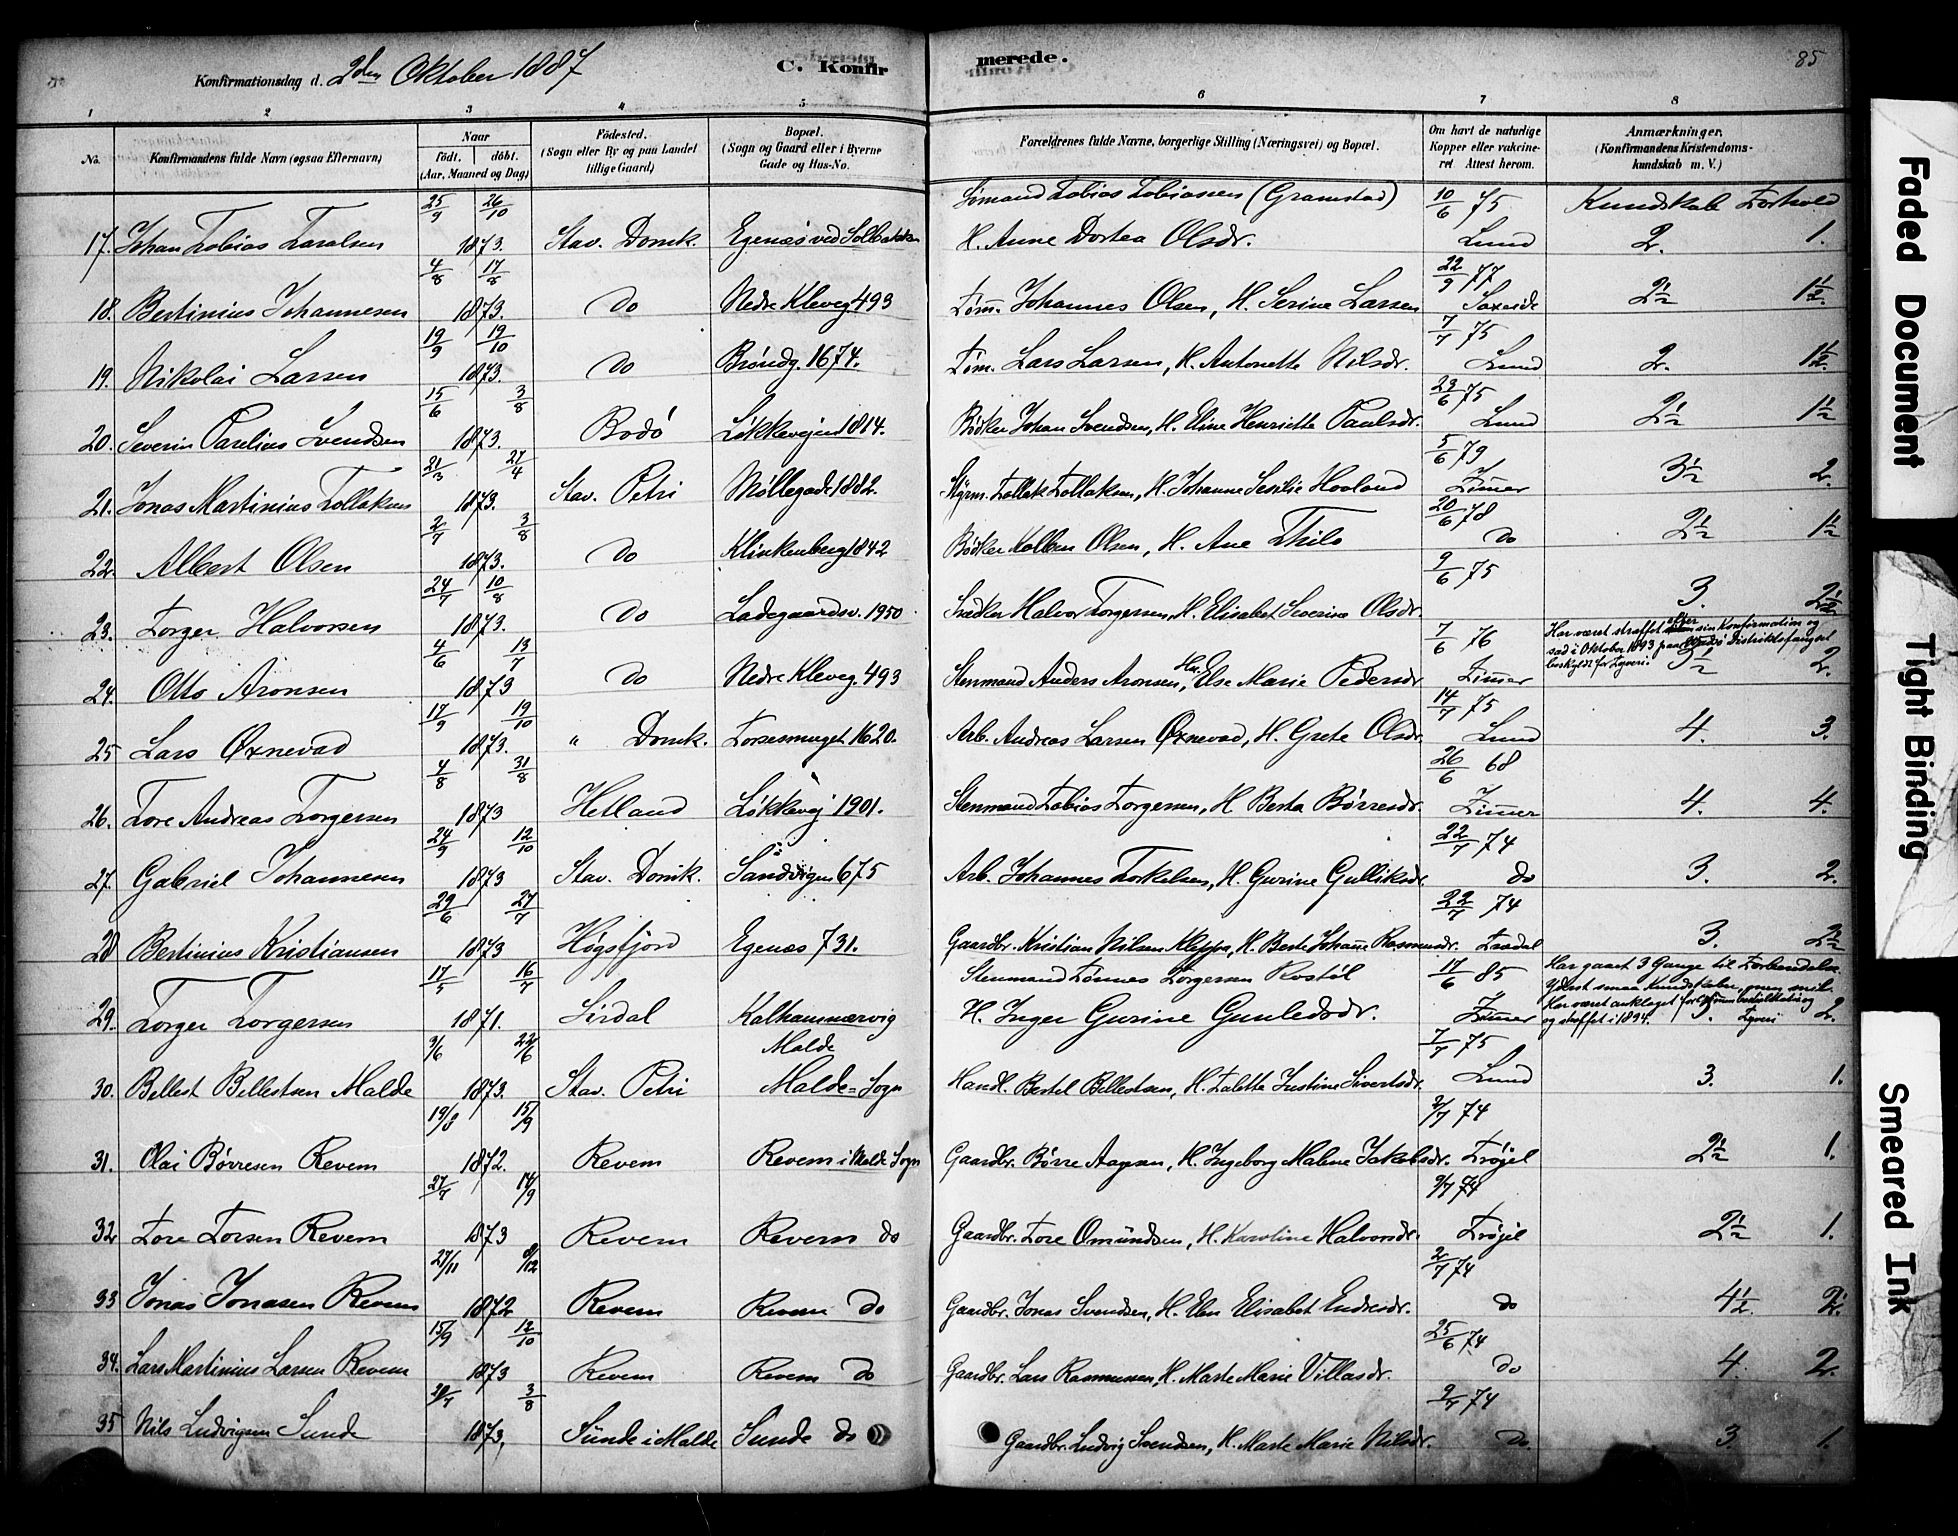 Konfirmationsdag d. 2den Oktober 1887
C. Konfirmerede.
85
1 2 3 4 5 6 7 8
No. Konfirmandens fulde Navn (ogsaa Efternavn) Naar født, døbt. (Aar, Maaned og Dag) Fødested. (Sogn eller By og paa Landet tillige Gaard) Bopæl. (Sogn og Gaard eller i Byerne Gade og Hus-No. Forældrenes fulde Navne, borgerlige Stilling (Næringsvei) og Bopæl. Om havt de naturlige Kopper eller vakcineret Attest herom. Anmærkninger. (Konfirmandens Kristendomskundskab m. V.)
25/9 26/10 Sømand Tobias Tobiassen (Gramstad) 10/6 75 Kundskab Forhold
17. Johan Tobias 1873. Stav. Domk. Egenæs ved Solbakken H. Anne Dortea Olsdr. Lund 2. 1.
4/8 17/8 22/9 77
18. Bertinius Johannesen 1873. Do Nedre Kleveg. 493 Tøm. Johannes Olsen, H. Serine Larsen 2½ 1½.
19/9 19/10 7/7 75
19. Nikolai Larsen 1873. Do Brøndg. 1674. Tøm. Lars Larsen, H. Antonette Nilsdr. Lund 2. 1½.
15/6 3/8 23/6 75
20. Severin Parelius Svendsen 1873. Bodø Løkkevejen 1814. Bødker Johan Svendsen, H. Eline Henriette Paulsdr. Lund 2½ 1½
21/3 27/4 5/6 79
21. Jonas Martinius Tollaksen 1873. Stav. Petri Møllegade 1882. Styrm. Tollak Tollaksen, H. Johanne Sesilie Hooland Zimmer 3½ 2.
2/7 3/8 20/6 78
22. Albert Olsen 1873. Do Klinkenberg 1842 Bødker Kolben Olsen, H. Ane Thilo Do 2½ 1½
24/7 10/8 9/6 75
23. Torger Halvorsen 1873. Do Ladegaardsv. 1950. Halvor Torgersen, H. Elisabet Severine Olsdr. 3. 2½
4/6 13/7 7/6 76 Har været straffet efter sin Konfirmation og
sad i Oktober 1893 paa Distriktsfængsel
beskyldt for Tyveri.
24. Otto Aronsen 1873 Do Nedre Kleveg. 493 Stenmand Anders Aronsen, Hu. Else Marie Pedersdr. Zimmer 3½ 2.
17/9 19/10 14/7 75
25 Lars Øxnevad 1873. " Domk. 1620. Arb. Andreas Larsen Øxnevad, H. Grete Olsdr. Lund 4. 3.
4/8 31/8 26/6 68
26. Tore Andreas Torgersen 1873 Hetland Løkkevej 1901. Stenmand Tobias Torgersen, H. Berta Børresdr. Zimmer 4. 4.
24/9 12/10 22/7 74
27. Gabriel Johannesen 1873 Stav. Domk. Sandvigen 675 Arb. Johannes Torkelsen, H. Gurine Gulliksdr. do 3. 2.
29/6 27/7 22/7 74
28 Bertinius Kristiansen 1873 Høgsfjord Egenæs 731. Gaardbr. Kristian Nilsen Kleppa, H. Berte Johanne Rasmusdr. 3. 2½
17/5 16/7 Stenmand Tønnes Torgersen Rostøl 17/6 85 Har gaaet 3 Gange til Forberedelse.
Yderst smaa Kundskaber, men snil.
29. Torger Torgersen 1871. Sirdal Kalhammervig Malde H. Inger Gurine Gunledsdr. Zimmer Har været anklaget for og
og straffet i 1894. Tyveri 3. 2.
9/6 22/6 7/7 75
30. Bellest Bellestsen Malde 1873. Stav. Petri Malde = Sogn Handl. Bertel Bellestsen, H. Talette Justine Sivertsdr. Lund 3. 1.
19/8 15/9 2/7 74
31. Olai Børresen Revem 1872. Revem Revem i Malde Sogn Gaardbr. Børre Aagesen, H. Ingeborg Malene Jakobsdr. Trøjel 2½ 1.
27/7 14/9 9/7 74
32 Tore Torsen Revem 1873 Revem Revem do Gaardbr. Tore Omundsen, H. Karoline Halvorsdr. Trøjel 2½ 1.
27/11 8/12 2/7 74
33 Jonas Jonasen Revem 1872 Revem Revem Do Gaardbr. Jonas Svendsen, H. Elen Elisabet Endresdr. Do 4½. 2½.
15/9 12/10 25/6 74
34. Lars Martinius Larsen Revem 1873 Revem Revem Do Gaardbr. Lars Rasmussen, H. Marte Marie Villasdr. Do 4. 2.
3/8 2/7 74
35 Nils Ludvigsen Sunde 1873, Sunde i Malde Sunde do Gaardbr. Ludvig Svendsen, H. Marte Marie Nilsdr. Do. 3. 1.
Faded Document
Tight Binding
Smeared Ink